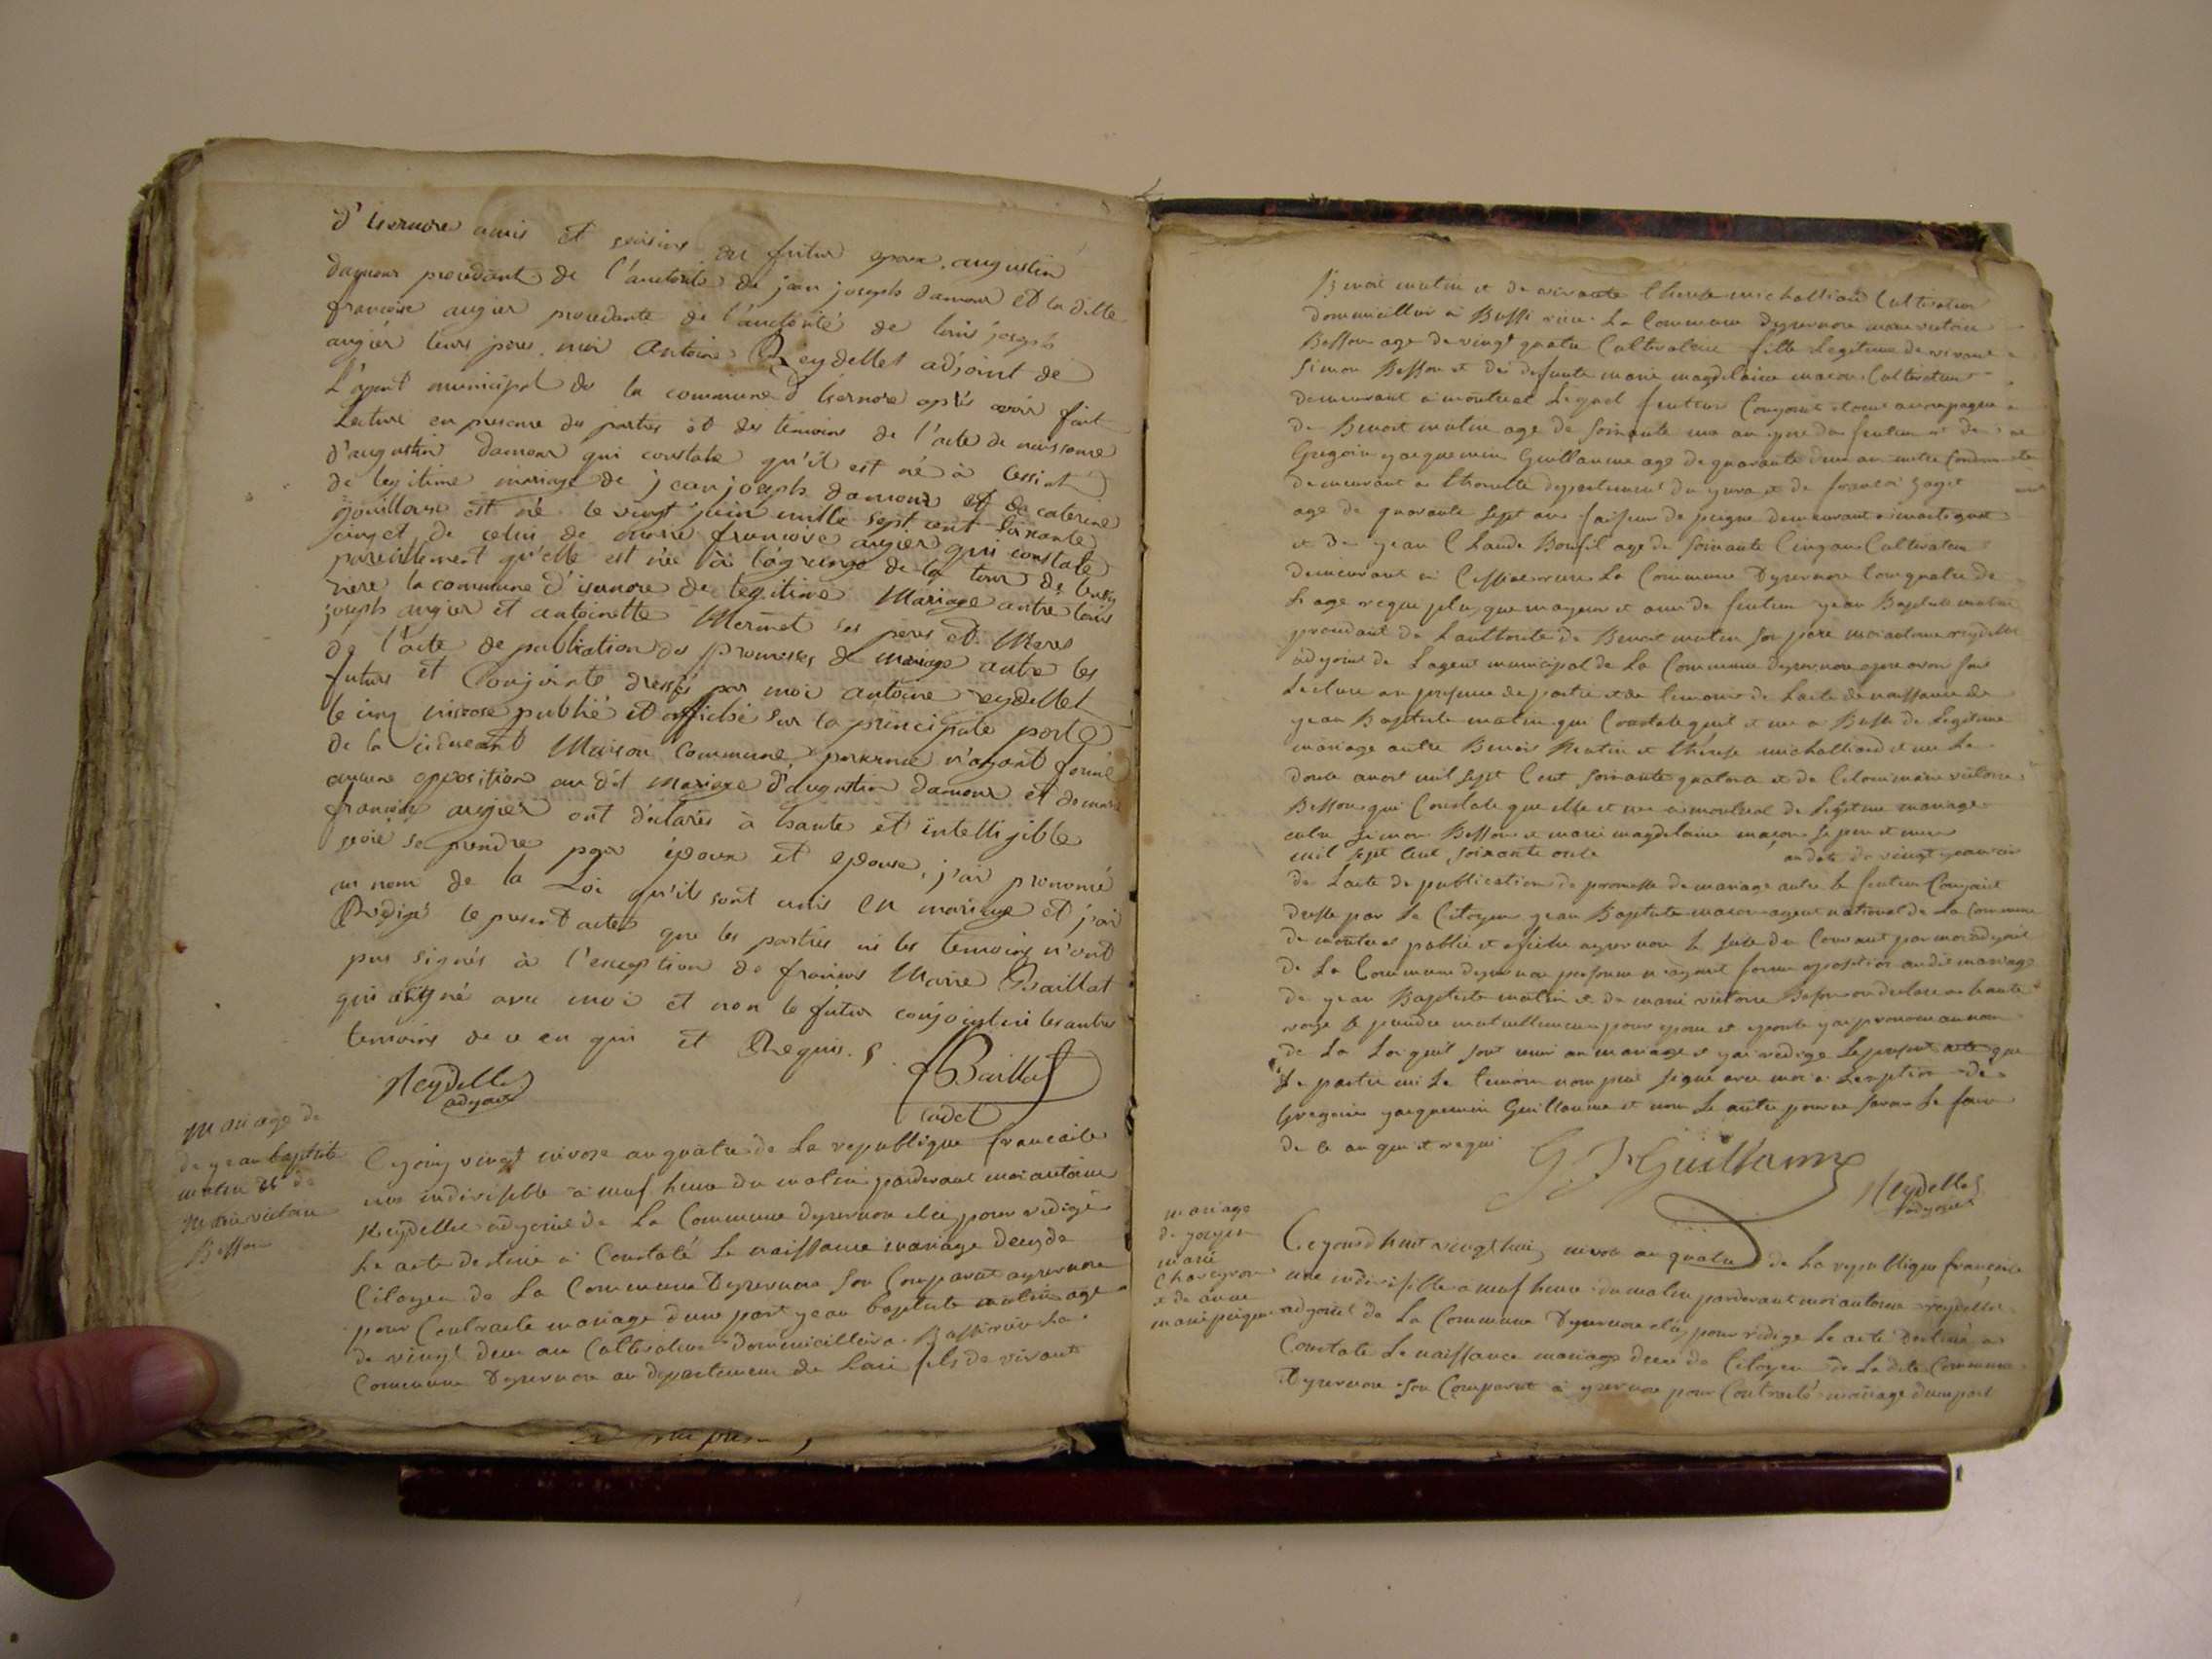 d'isernore amis et voisins du futur epoux, augustin
damour procedant de l'auctorité de jean joseph damour et la ditte
francoise augier procedante de l'auctorité de louis joseph
augier leurs peres, moi Antoine Reydellet adjoint de
L'agent municipal de la commune d'isernore après avoir fait
Lecture en presence des parties et des temoins de l'acte de naissance
d'augustin damour qui constate qu'il est né à
de legitime mariage de jean joseph damour et de caterine
est né le vingt juin mille sept cent soixante
cinq et de celui de marie francoise augier qui constate
pareillement qu'elle est née à la grange de la tour de
riere la commune d'isernore de legitime Mariage entre louis
joseph augier et antoinette Mermet ses peres et Meres
de l'acte de publication des promesses de mariage entre les
futurs et Conjoints dressés par moi antoine reydellet
le cinq nivose publié et affiché sur la principale porte
de la Maison Commune, personne n'ayant formé
aucune opposition au dit Mariage d'augustin damour et de marie
francoise augier ont déclarés à haute et intelligible
voie se prendre pour époux et epouse, j'ai prononcé
au nom de la Loi qu'ils sont unis en mariage et j'ai
Redigé le present acte que les parties ni les temoins n'ont
pas signés à l'exception de francois Marie Baillat
qui a signé avec moi et non le futur conjoint ni les autres
temoins de ce en qui et Requis.
Reydellet adjoint
Baillat
cadet
Mariage de
de jean baptiste
matin et de
marie victoire
Besson
Cejourg vingt nivose an quatre de La republique francaise
une indivisible à neuf heure du matin pardevant moi antoine
Reydellet adjoint de La Commune dysernore elu pour redigé
Le acte destiné a Constaté Le naissance mariage decey de
Citoyen de La Commune Dysernore son Comparut aysernore
pour Contracte mariage dune part jean baptiste matin age
de vingt deux an Cultivateur domicillier a Bussi riere La
Commune Dysernore au departement de Lain fils de vivant
Benoit matin et de vivante therese michalliard Cultivateur
domicillier a Bussi riere La Commune Dysernore marie victoire
Besson age de vingt quatre Cultivateur fille Legitime de vivant
Simon Besson et de defunte marie magdelaine macon Cultivateur
demeurant a montreal Lequel futeur Conjoint etoit acompagne
de Benoit matin age de soixante un an pere du futeur et de
Gregoire jacquemin Guillaume age de quarante deux an
demeurant a thoirette departement du jura et de francoi
age de quarante sept an faiseur de peigne demeurant a
et de jean Claude Bonfil age de soixante cinq an Cultivateur
demeurant a riere La Commune Dysernore tou quatre de
Lage reque plus que majeur et ami de futeur jean Baptiste matin
procedant de Lauthorite de Benoit matin son pere moi antoine reydellet
adjoint de Lagent municipal de La Commune dysernore apre avoir fait
Lecture en presence de partie et de temoins de Lacte de naissance de
jean Baptiste matin qui Constate quil et ne a Bussi de Legitime
mariage entre Benoit Matin et therese michalliard et ne Le
douze aout mil sept Cent soixante quatorze et de Celui marie victoire
Besson qui Constate que elle et ne a montreal de Legitime mariage
entre Simon Besson et marie magdelaine macon se pere et mere
mil sept Cent soixante onze
de Lacte de publication de promesse de mariage entre le futeur Conjoint
dresse par Le Citoyen jean Baptiste macon agent national de La Commune
de montreal publie et afiche aysernore Le du Courant par moi adjoint
de La Commune dysernore personne nayant forme oposition audit mariage
de jean Baptiste matin et de marie victoire Besson on declare a haute
voye se prendre mutuellement pour epoux et epouse jai prononce au nom
de La Loi quil sont uni an mariage et jai redige Le present acte que
Le partie ni Le temoin non point signe avec moi a Lexeption de
Gregoire jacquemin Guillaume et non Le autre pour ne savoir Le faire
de ce an qui et requi
G J Guillaume
Reydellet
adjoint
mariage
de
marie
et de anne
marie
Cejourdhuit vingt huit nivose an quatre de La republique francaise
une indivisible a neuf heure du matin pardevant moi antoine reydellet
adjoint de La Commune Dysernore elu pour redige Le acte Destiné a
Constate Le naissance mariage dece de Citoyen de La dite Commune
Dysernore son Comparut a ysernore pour Contracté mariage dunepart